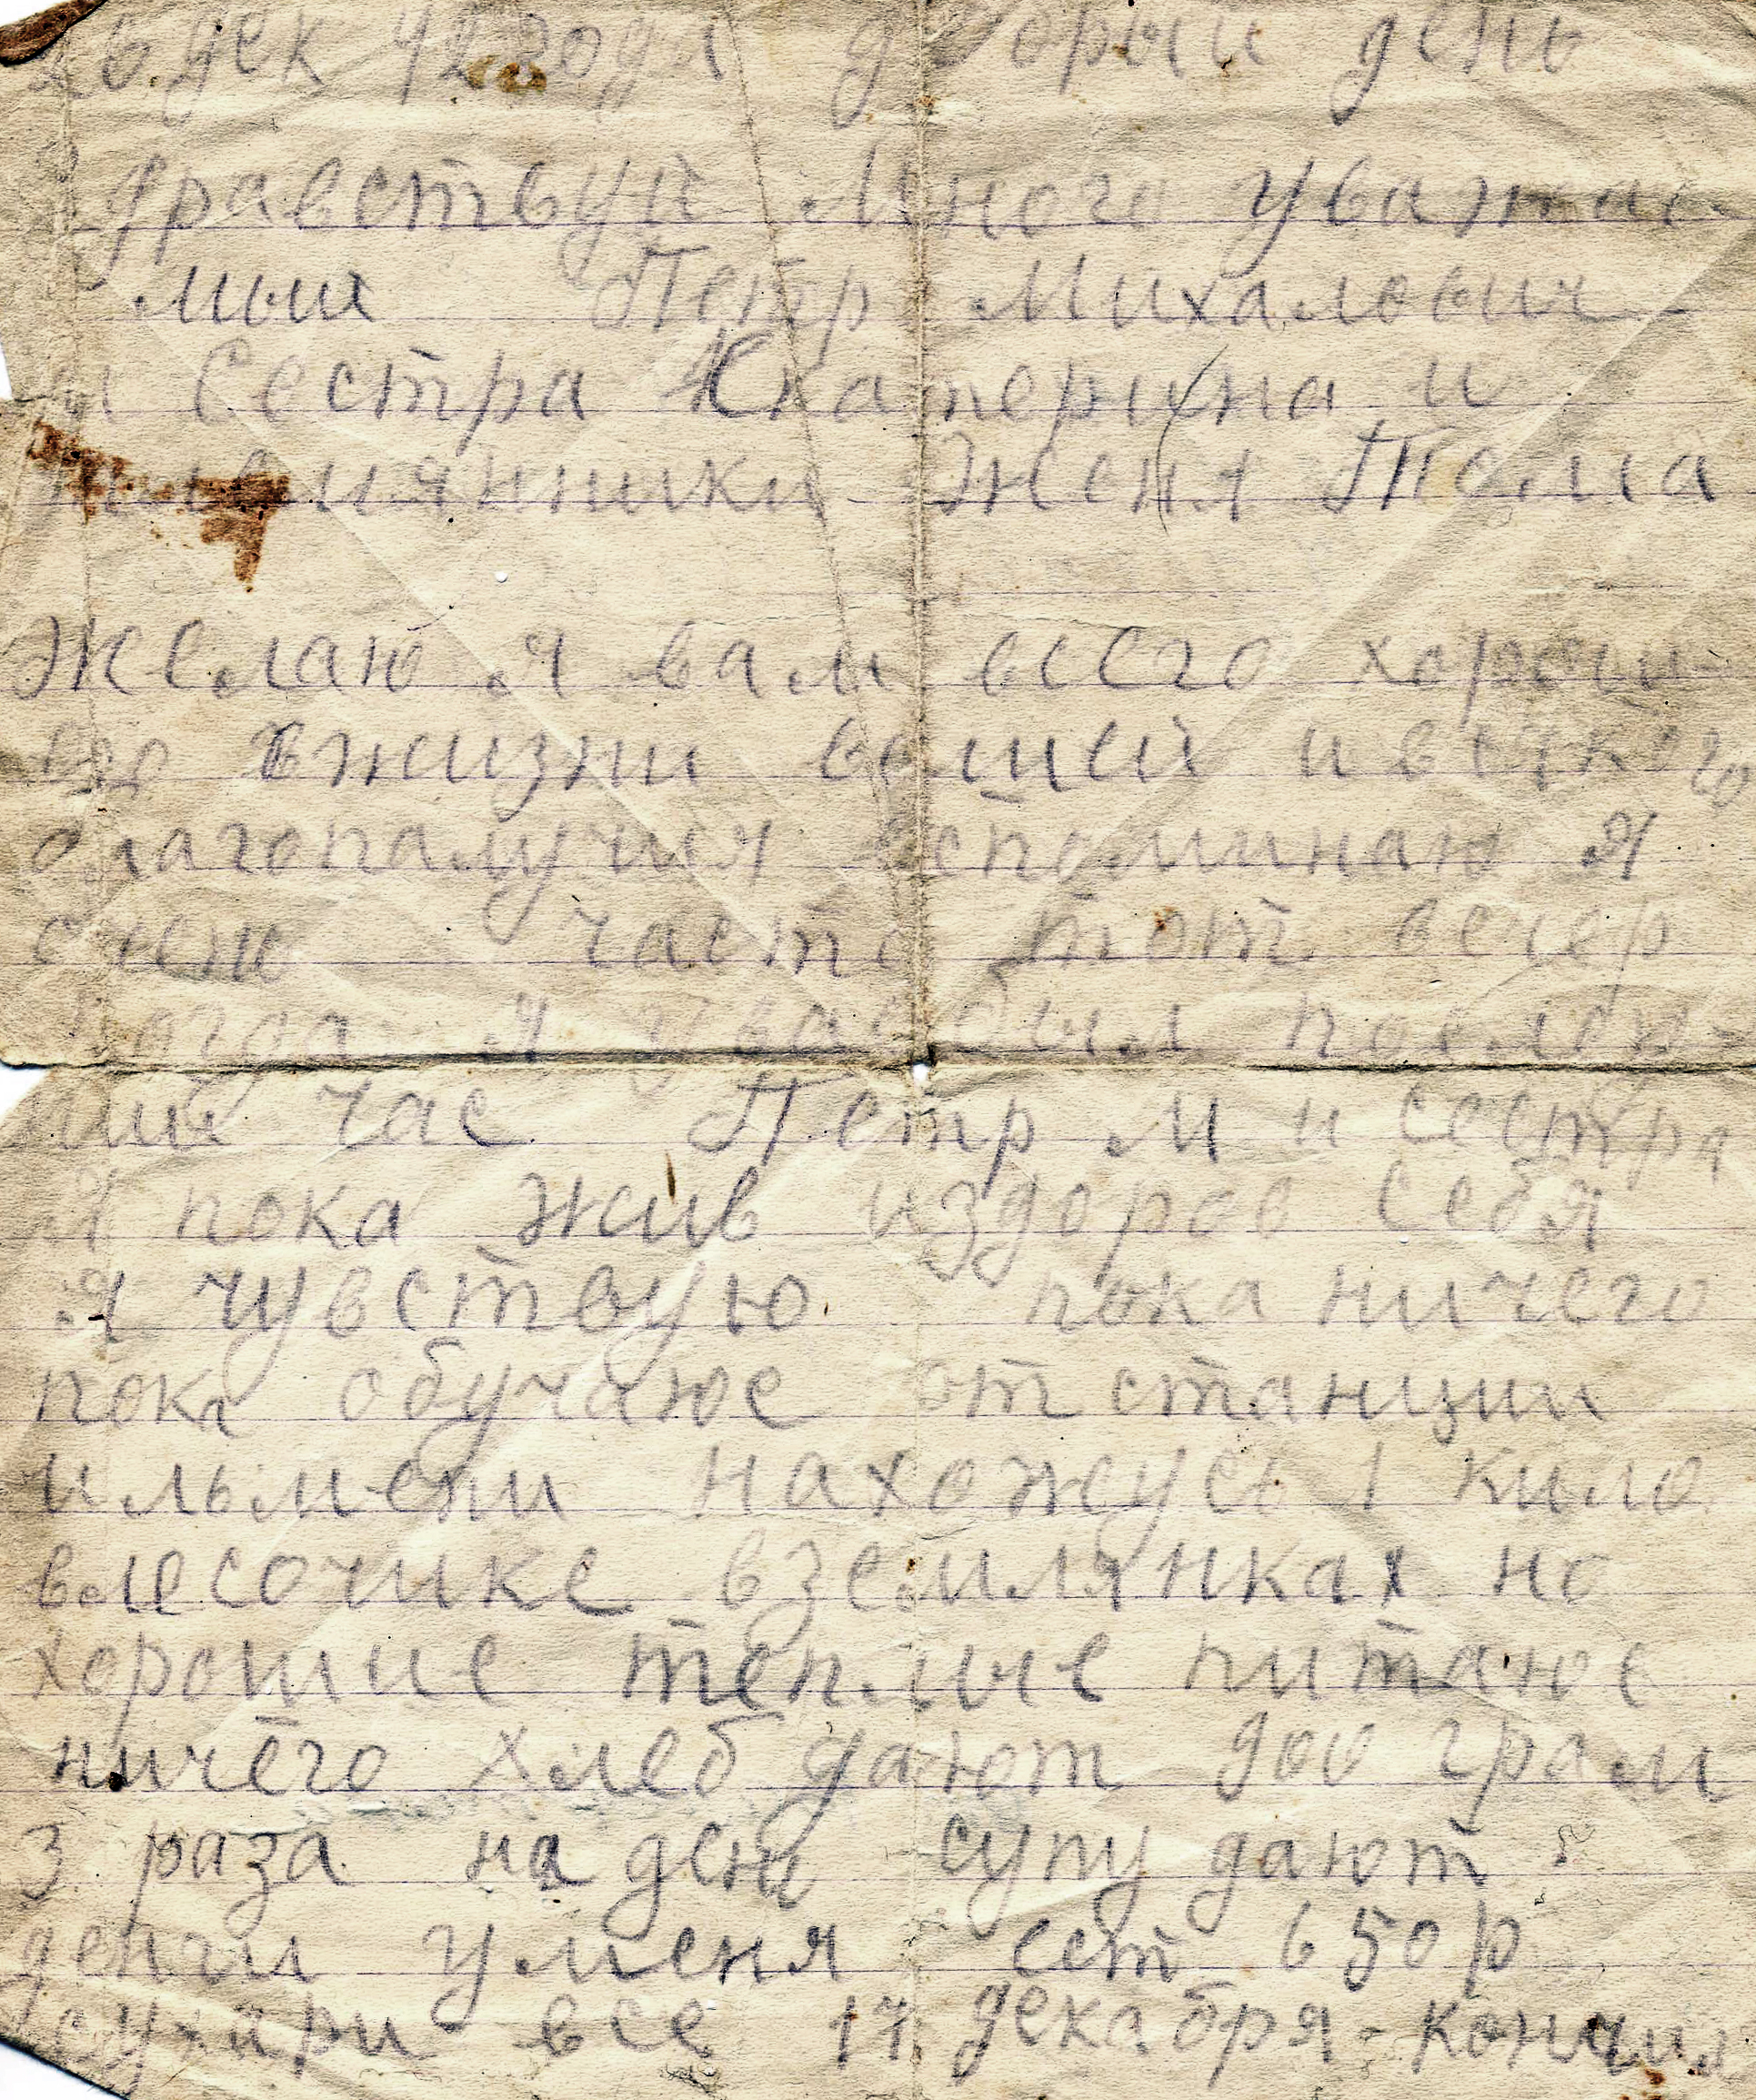 26 дек 42 года добрый день
Здравствуй Много уважае
мыи Петр Михалович
и Сестра Катерина и
племянники Женя Тома
Желаю я вам всего хорош-
его вжизни вашей ивсякого
благопалучия вспоминаю я
часто тот вечер
когда я увас был послед-
ний час Петр М и сестра
Я пока жив издоров себя
я чувствую пока ничего
пока обучаюс от станции
ильмени нахожусь 1 кило
влесочике вземлянках но
хорошие теплые питаюс
ничего хлеб дают 900 грам
3 раза на ден супу дают
денги уменя ест 650р
сухари все 17 декабря кончил